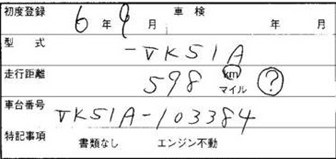 初度登録 6年 9月 車検 年 月
型式 -VK51A
走行距離 598 km マイル ?
車台番号 VK51A-103384
特記事項 書類なし エンジン不動